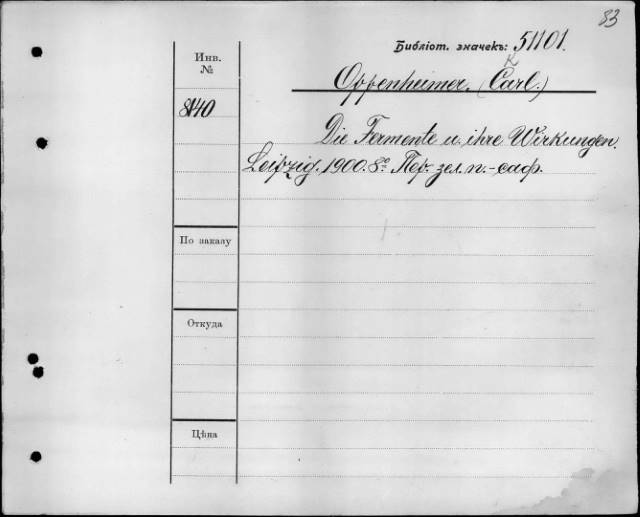 83
Библіот. значекъ: 51101.
Инв. №
K
Oppenheimer. (Carl.)
8140
Die Fermente u. ihre Wirkungen.
Leipzig. 1900. 8º. Пер. зел. п.-саф.
По заказу
Откуда
Цѣна